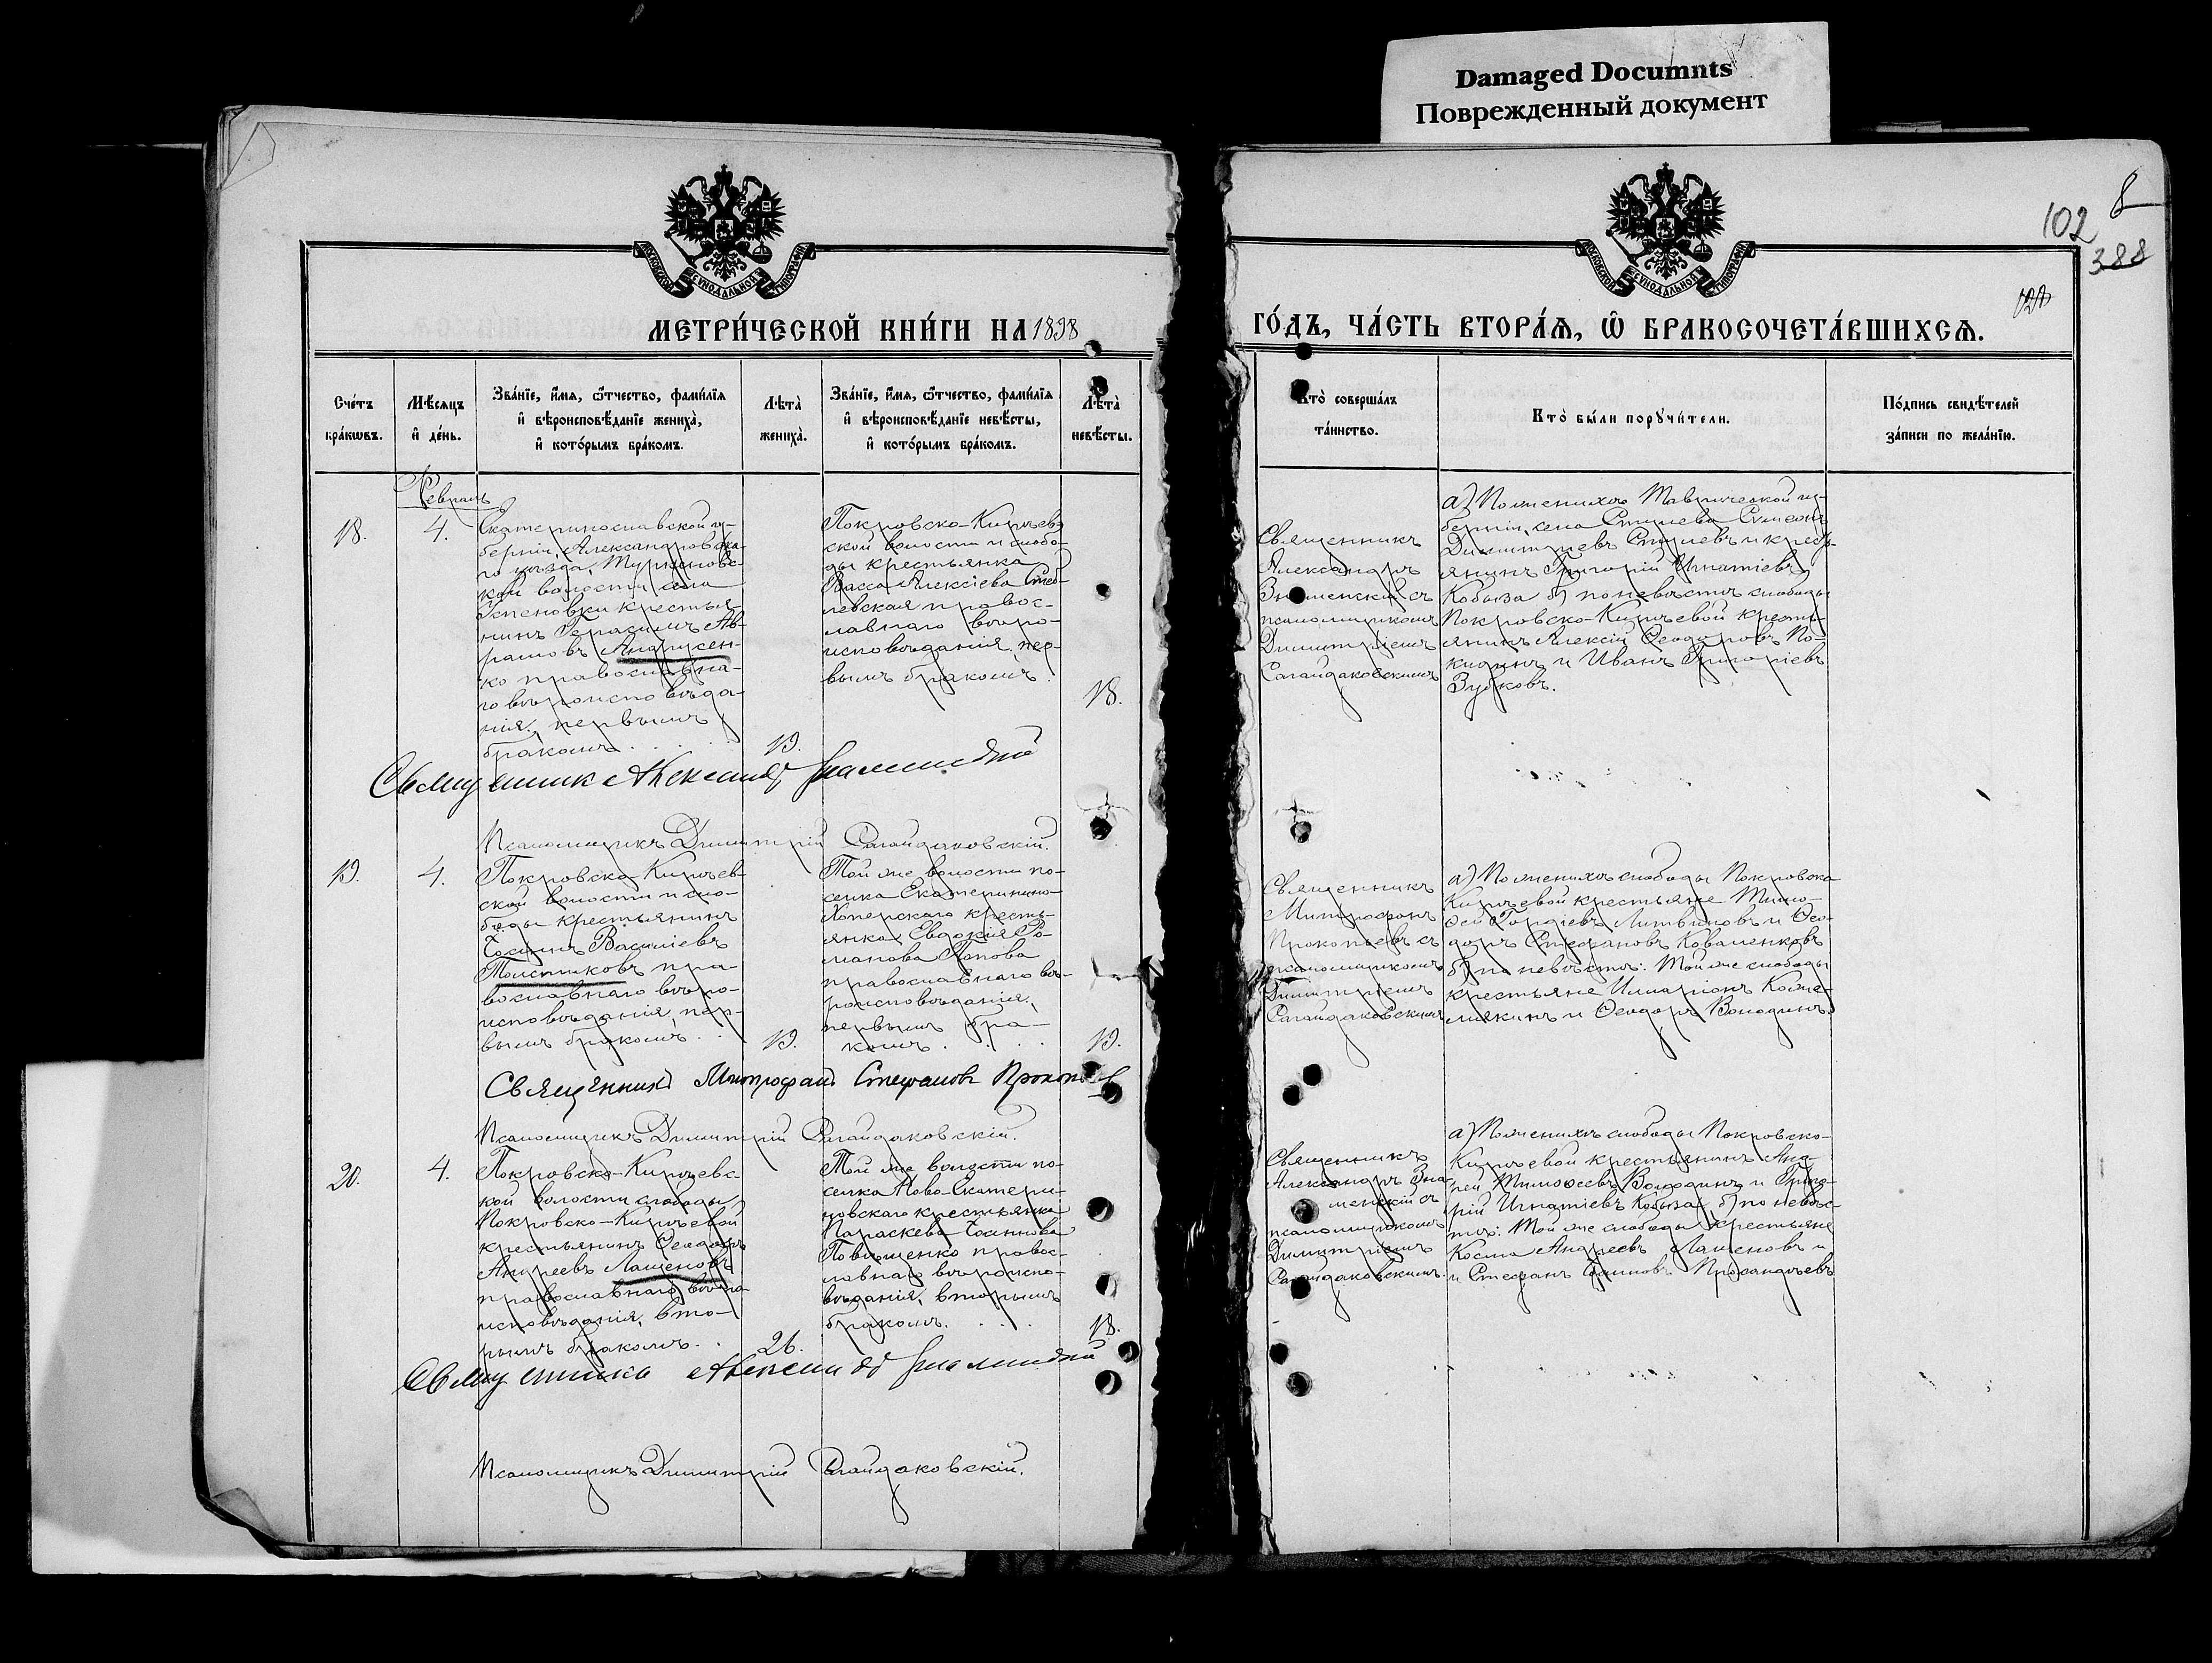 Damaged Documnts
Поврежденный документ
102
8
388
МОСКОВСКОЙ СѴНОДАЛЬНОЙ ТИПОГРАФІИ
МОСКОВСКОЙ СѴНОДАЛЬНОЙ ТИПОГРАФІИ
МЕТРИ́ЧЕСКОЙ КНИ́ГИ НА 1898
ГО́ДЪ, ЧА́СТЬ ВТОРА́Ѧ, Ѡ҆ БРАКОСОЧЕТА́ВШИХСѦ.
Сче́тъ бра́кѡвъ.
Мѣ́сѧцъ и҆ де́нь.
Зва́нїе, и҆́мѧ, ѻ҆́тчество, фами́лїѧ и҆ вѣроисповѣ́данїе жениха̀, и҆ кото́рымъ бра́комъ.
Лѣта̀ жениха̀.
Зва́нїе, и҆́мѧ, ѻ҆́тчество, фами́лїѧ и҆ вѣроисповѣ́данїе невѣ́сты, и҆ кото́рымъ бра́комъ.
Лѣта̀ невѣ́сты.
Кто̀ соверша́лъ та́инство.
Кто̀ бы́ли порꙋчи́тели.
По́дпись свидѣ́телей за́писи по жела́нїю.
Февраль
18.
4.
Екатеринославской гу-
берніи, Александровска-
го уѣзда,
кой волости села
Успеновки крестья-
нинъ Герасимъ Ав-
рамовъ Андрусен-
ко православна-
го вѣроисповѣда-
нія, первымъ
бракомъ . . . .
19.
Покровско-Кирѣев-
ской волости и слобо-
ды крестьянка
Васса Алексіева
левская правос-
лавнаго вѣро-
исповѣданія, пер-
вымъ бракомъ .
18.
Священникъ
Александръ
Знаменскій съ
псаломщикомъ
Димитріемъ
Сагайдаковскимъ
а) По женихѣ Таврической гу-
берніи, села
Димитріевъ и крест-
янинъ Григорій Игнатіевъ
Кобыза б) по невѣстѣ слободы
Покровско-Кирѣевой кресть-
янинъ Алексій Ѳеодоровъ По-
и Иванъ Григоріевъ
Зубковъ.
Священник Александр Знаменский
Псаломщикъ Димитрій Сагайдаковскій.
19.
4.
Покровско-Кирѣев-
ской волости и сло-
боды крестьянинъ
Іоаннъ Василіевъ
Толстиковъ пра-
вославнаго вѣро-
исповѣданія, пер-
вымъ бракомъ . .
19.
Той же волости по-
селка Екатеринино-
Хоперскаго кресть-
янка Евдокія Ро-
манова Попова
православнаго вѣ-
роисповѣданія,
первымъ бра-
комъ . . .
19.
Священникъ
Митрофанъ
Прокопьевъ съ
псаломщикомъ
Димитріемъ
Сагайдаковскимъ
а) По женихѣ слободы Покровско
Кирѣевой крестьяне Тимо-
ѳей Гордіевъ Литвиновъ и Ѳео-
доръ Стефановъ Коваленковъ
б) по невѣстѣ: Той же слободы
крестьяне Илларіонъ Коже-
мякинъ и Ѳеодоръ Володинъ.
Священникъ Митрофанъ Стефановъ Прокопьев
Псаломщикъ Димитрій Сагайдаковскій.
20.
4.
Покровско-Кирѣевс-
кой волости слободы
Покровско-Кирѣевой
крестьянинъ Ѳеодоръ
Андреевъ Лашеновъ
православнаго вѣро-
исповѣданія, вто-
рымъ бракомъ. .
26.
Той же волости по-
селка Ново-Екатери-
новскаго крестьянка
Параскева Іоаннова
правос-
лавнаго вѣроиспо-
вѣданія, вторымъ
бракомъ. . . .
18.
Священникъ
Александръ Зна-
менскій съ
псаломщикомъ
Димитріемъ
Сагайдаковскимъ.
а) По женихѣ слободы Покровско-
Кирѣевой крестьянинъ Анд-
рей Тимоѳеевъ Володинъ и Григо-
рій Игнатіевъ Кобыза б) по невѣс-
тѣ: Той же слободы крестьяне
Косма Андреевъ Лашеновъ и
и Стефанъ Іоанновъ
Священникъ Александр Знаменский
Псаломщикъ Димитрій Сагайдаковскій.